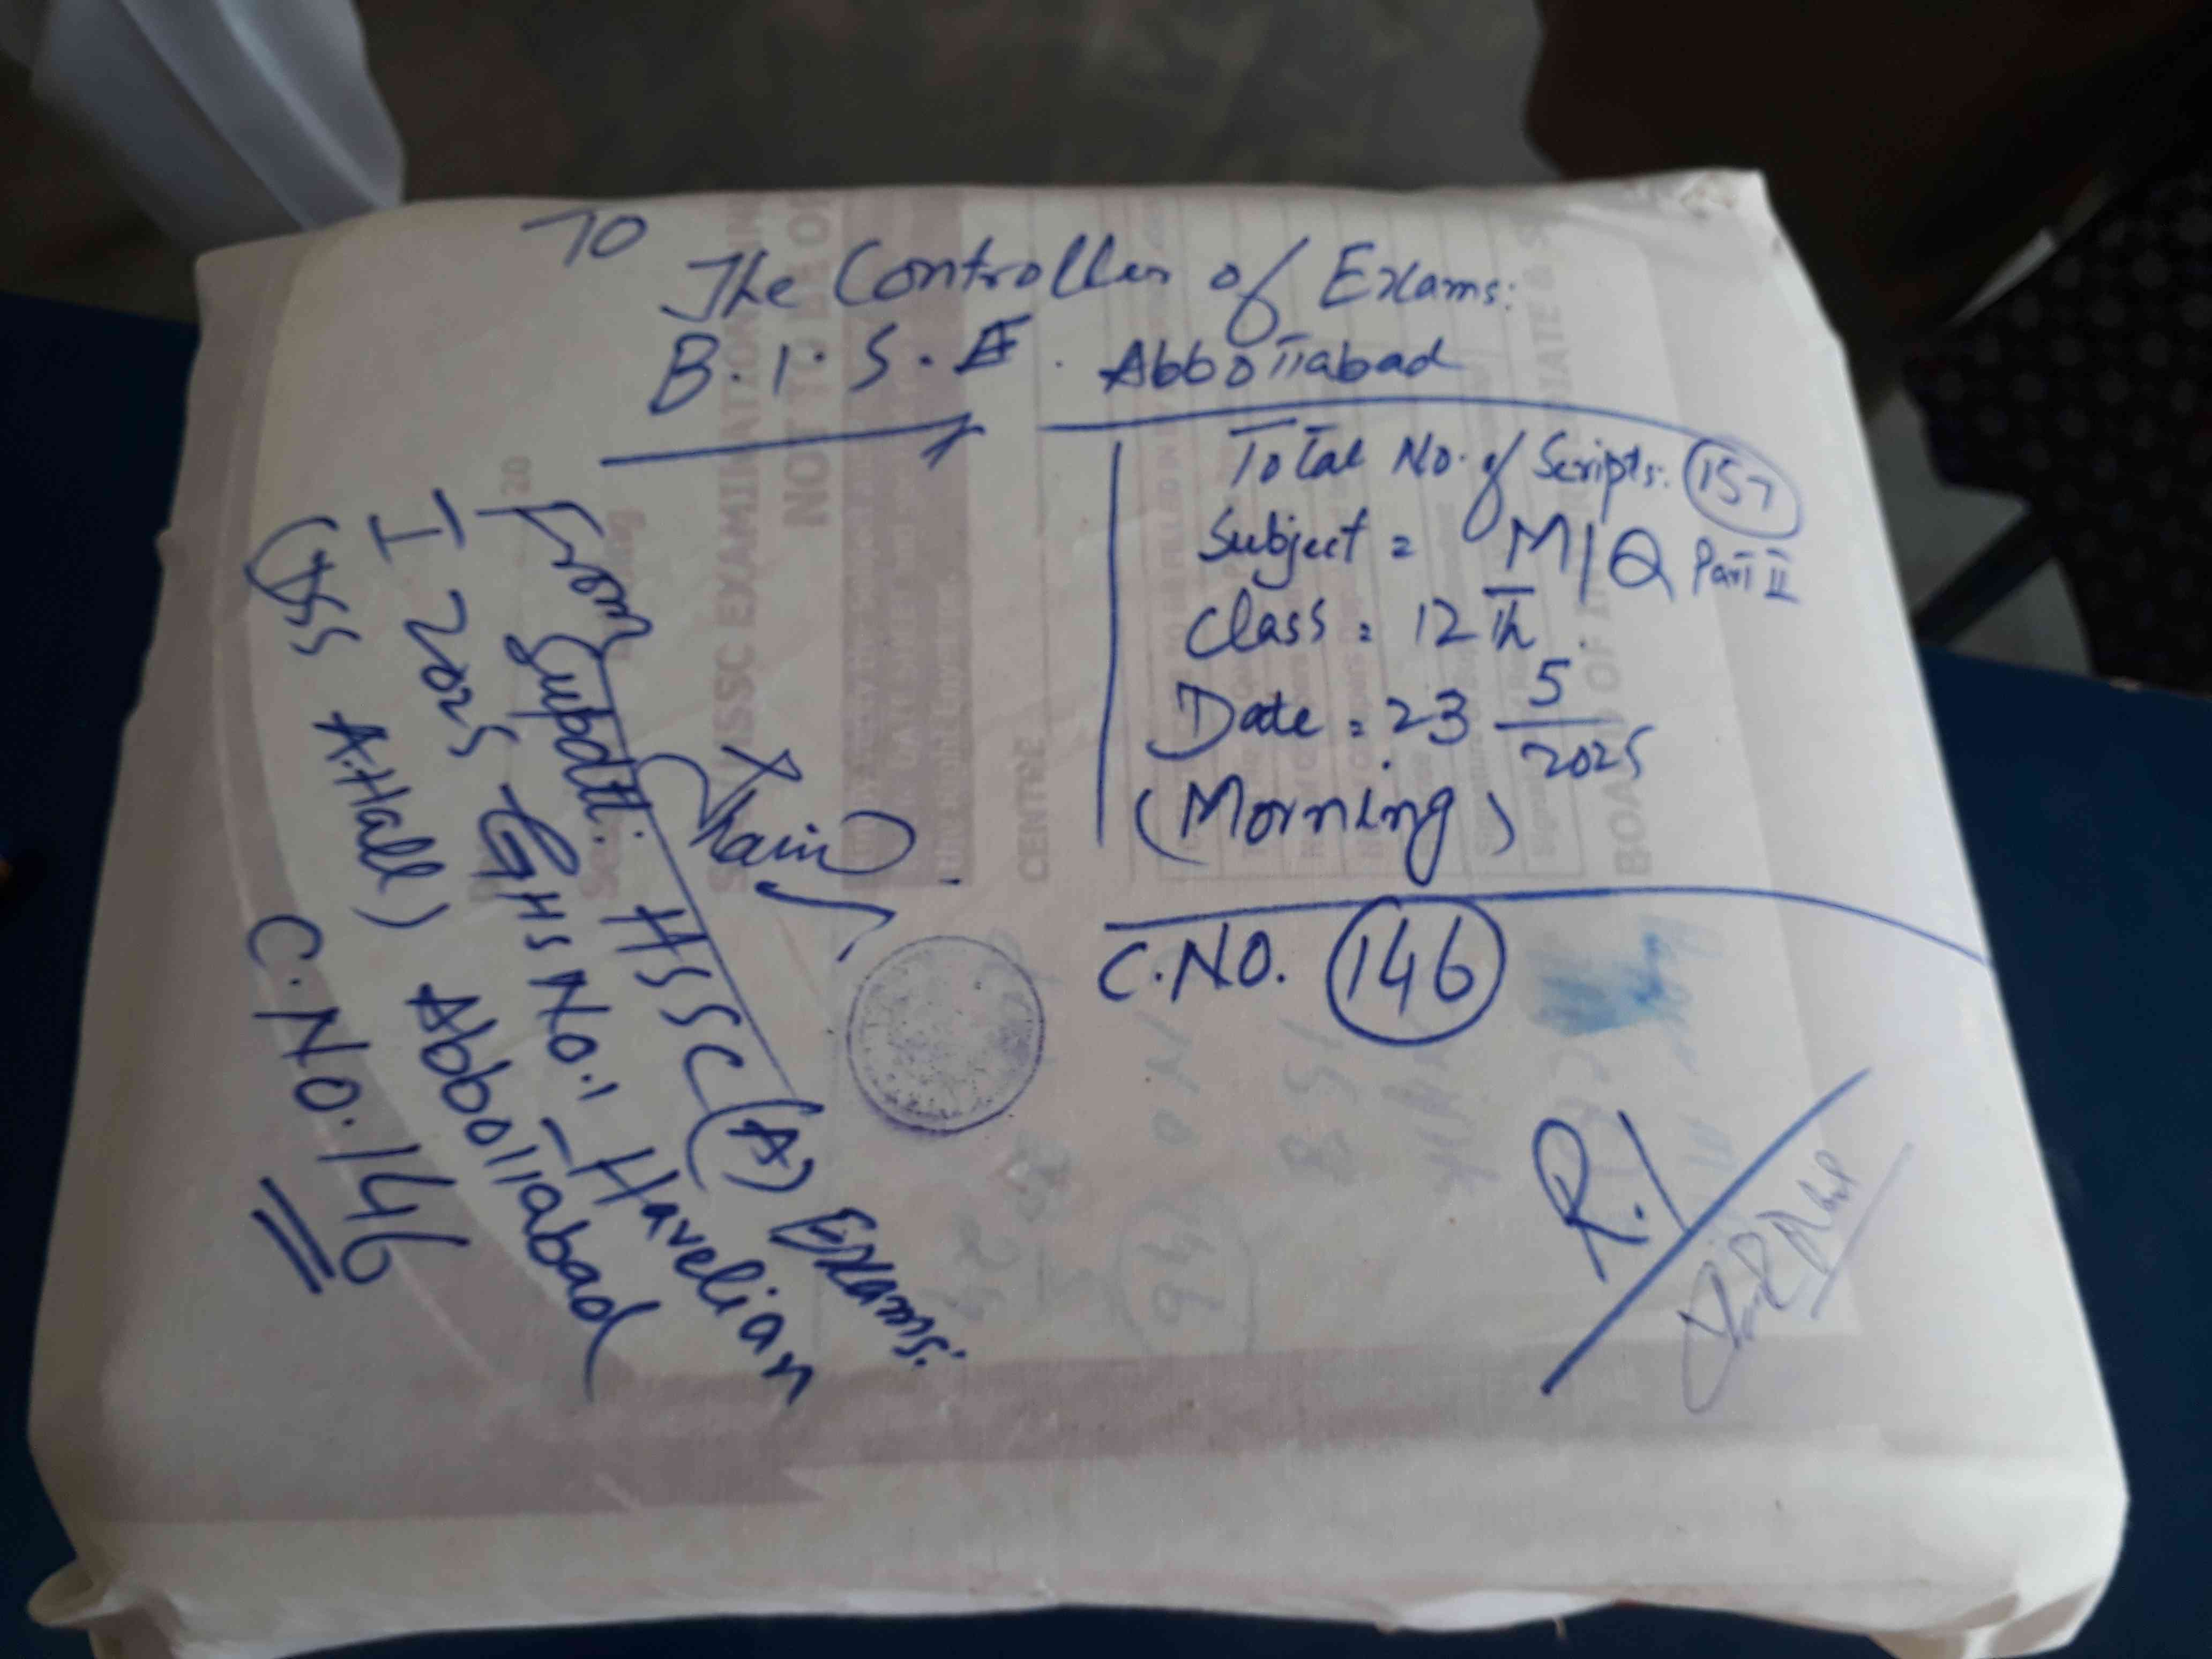 To
The Controller of Exams:
B.I.S.E. Abbottabad
Total No. of Scripts: 157
Subject = M/Q Part II
Class = 12th
Date = 23 5/2025
(Morning)
C.NO. 146
From
Supdtt: HSSC(A) Exams:
I 2025 GHS No.1 - Havelian
A.Hall) Abbottabad
C.NO.146
R.1
CENTRE
NOT TO BE
SSC EXAMINATION